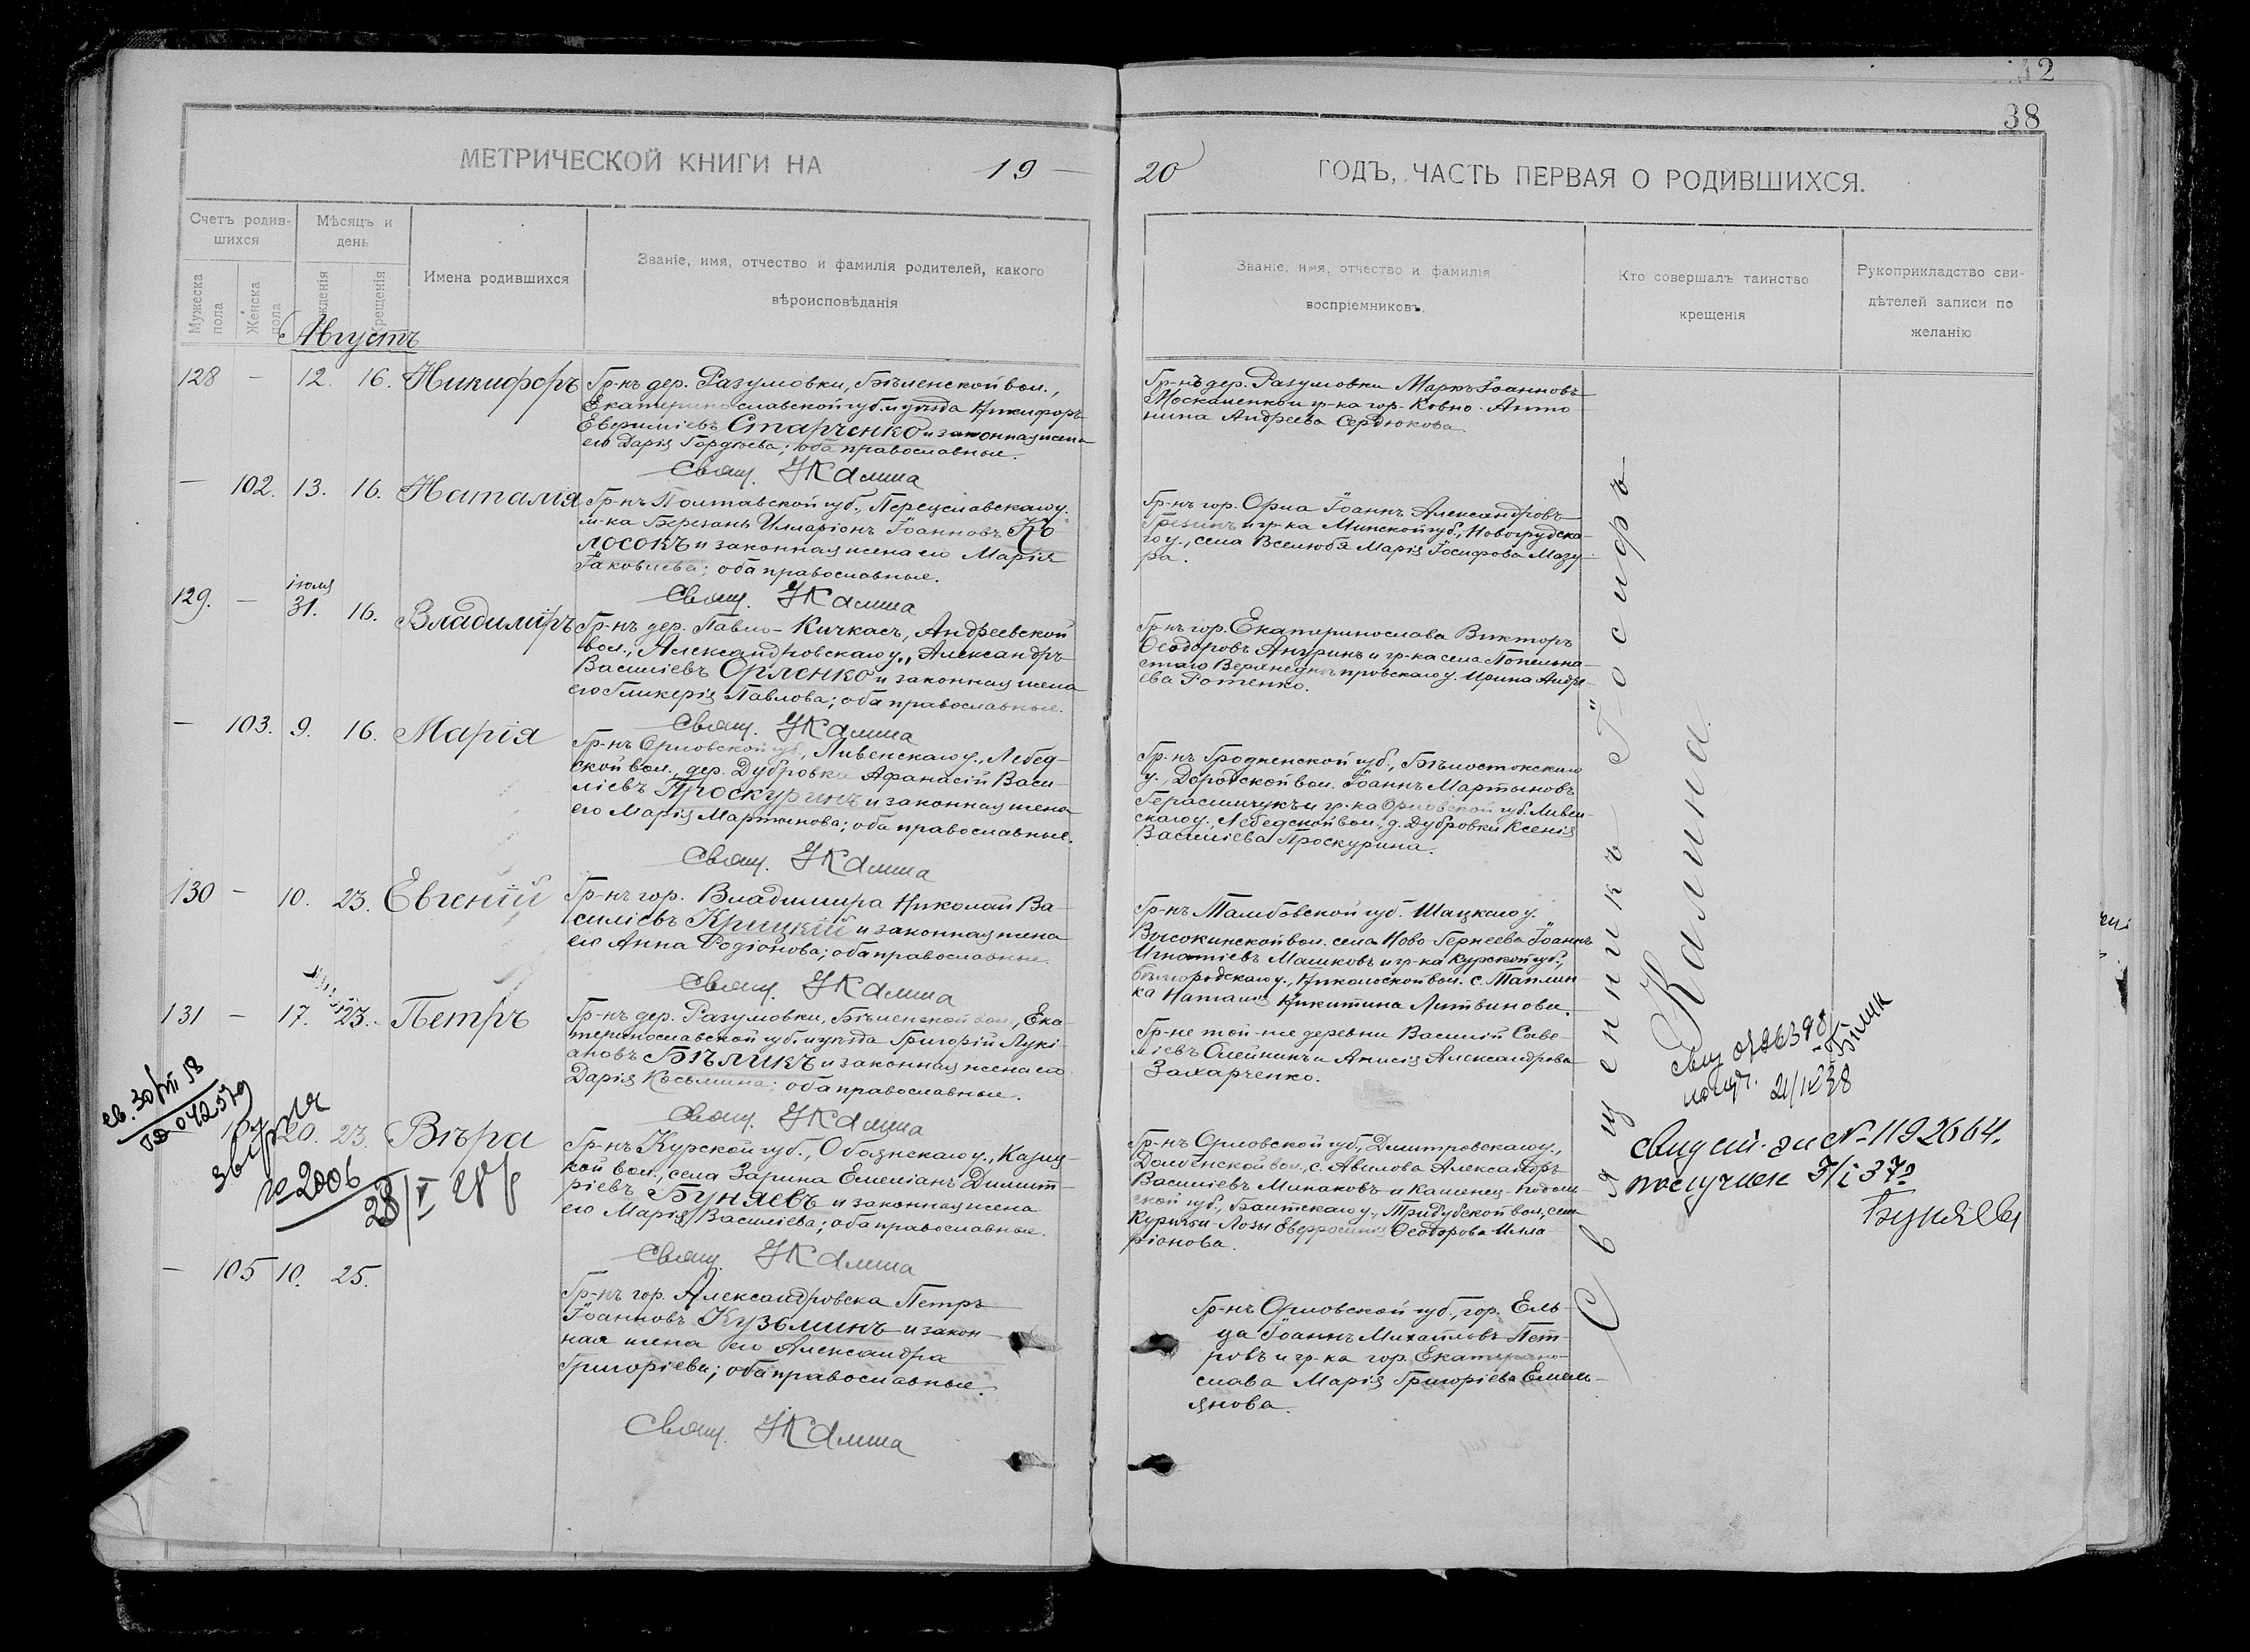 42
38
МЕТРИЧЕСКОЙ КНИГИ НА 19 —
20 ГОДЪ, ЧАСТЬ ПЕРВАЯ О РОДИВШИХСЯ.
Счетъ родив-
шихся
Мѣсяцъ и
день
Мужеска
пола
Женска
пола
рожденія
крещенія
Имена родившихся
Званіе, имя, отчество и фамилія родителей, какого
вѣроисповѣданія
Званіе, имя, отчество и фамилія
воспріемниковъ.
Кто совершалъ таинство
крещенія
Рукоприкладство сви-
дѣтелей записи по
желанію
Августъ
128 — 12. 16. Никифоръ
Гр-нъ дер. Разумовки, Бѣленской вол.,
Екатеринославской губ. и уѣзда Никифоръ
Евфиміевъ Старченко и законная жена
его Дарія Гордѣева; оба православные.
Свящ. І Калина
Гр-нъ дер. Разумовки Маркъ Іоанновъ
Москаленко и гр-ка гор. Ковно Анто
нина Андреева Сердюкова.
— 102. 13. 16. Наталія
Гр-нъ Полтавской губ., Переяславскаго у.
м-ка Березань Илларіонъ Іоанновъ Ко
лосокъ и законная жена его Марія
Іаковлева; оба православные.
Свящ. І Калина
Гр-нъ гор. Орла Іоаннъ Александровъ
Грезинъ и гр-ка Минской губ., Новогрудска-
го у., села Вселюбя Марія Іосифова Мазу
ра.
129. — іюля 31. 16. Владиміръ
Гр-нъ дер. Павло-Кичкасъ, Андреевской
вол., Александровскаго у., Александръ
Василіевъ Орленко и законная жена
его Гликерія Павлова; оба православные.
Свящ. І Калина
Гр-нъ гор. Екатеринослава Викторъ
Ѳеодоровъ Апуринъ и гр-ка села Попельна-
стаго Верхнеднѣпровскаго у. Ирина Андре
ева Ротенко.
— 103. 9. 16. Марія
Гр-нъ Орловской губ., Ливенскаго у., Лебед-
ской вол., дер. Дубровки Афанасій Васи-
ліевъ Проскуринъ и законная жена
его Марія Мартинова; оба православные.
Свящ. І Калина
Гр-нъ Гродненской губ., Бѣлостокскаго
у., Дородской вол. Іоаннъ Мартыновъ
Герасимчукъ и гр-ка Орловской губ. Ливен-
скаго у., Лебедской вол., д. Дубровки Ксенія
Василіева Проскурина.
130 — 10. 23. Евгеній
Гр-нъ гор. Владимира Николай Ва-
силіевъ Крицкій и законная жена
его Анна Родіонова; оба православные.
Свящ. І Калина
Гр-нъ Тамбовской губ. Шацкаго у.
Высокинской вол. села Ново-Гернеева Іоаннъ
Игнатіевъ Машковъ и гр-ка Курской губ.,
Бѣлгородскаго у., Никольской вол. с. Таплин-
ка Наталія Никитина Литвинова.
131 — 17. 23. Петръ
Гр-нъ дер. Разумовки, Бѣленской вол., Ека-
теринославской губ. и уѣзда Григорій Лукі-
ановъ Бѣликъ и законная жена его
Дарія Косьмина; оба православные.
Свящ. І Калина
Гр-не той-же деревни Василій Саве-
ліевъ Олейникъ и Анисія Александрова
Захарченко.
20. 23. Вѣра
Гр-нъ Курской губ., Обоянскаго у., Казац-
кой вол., села Зарина Емеліанъ Димит-
ріевъ Буняевъ и законная жена
его Марія Василіева; оба православные.
Свящ. І Калина
Гр-нъ Орловской губ., Дмитровскаго у.,
Долбенской вол., с. Авилова Александръ
Василіевъ Минаковъ и Каменец-Подоль-
ской губ., Балтскаго у., Тридубской вол., села
Куричьи-Лозы Евфросинія Ѳеодорова Илла
ріонова.
— 105 10. 25.
Гр-нъ гор. Александровска Петръ
Іоанновъ Кузьминъ и закон-
ная жена его Александра
Григоріева; оба православные.
Свящ. І Калина
Гр-нъ Орловской губ., гор. Ель-
ца Іоаннъ Михайловъ Пет-
ровъ и гр-ка гор. Екатерино-
слава Марія Григоріева Емель-
янова.
Священникъ Іосифъ
Калина.
№ 2006
28/V
получ. 21/IX 38
Бѣлик
Свидет. за № 1192664.
получил 3/I 37г
Буняева